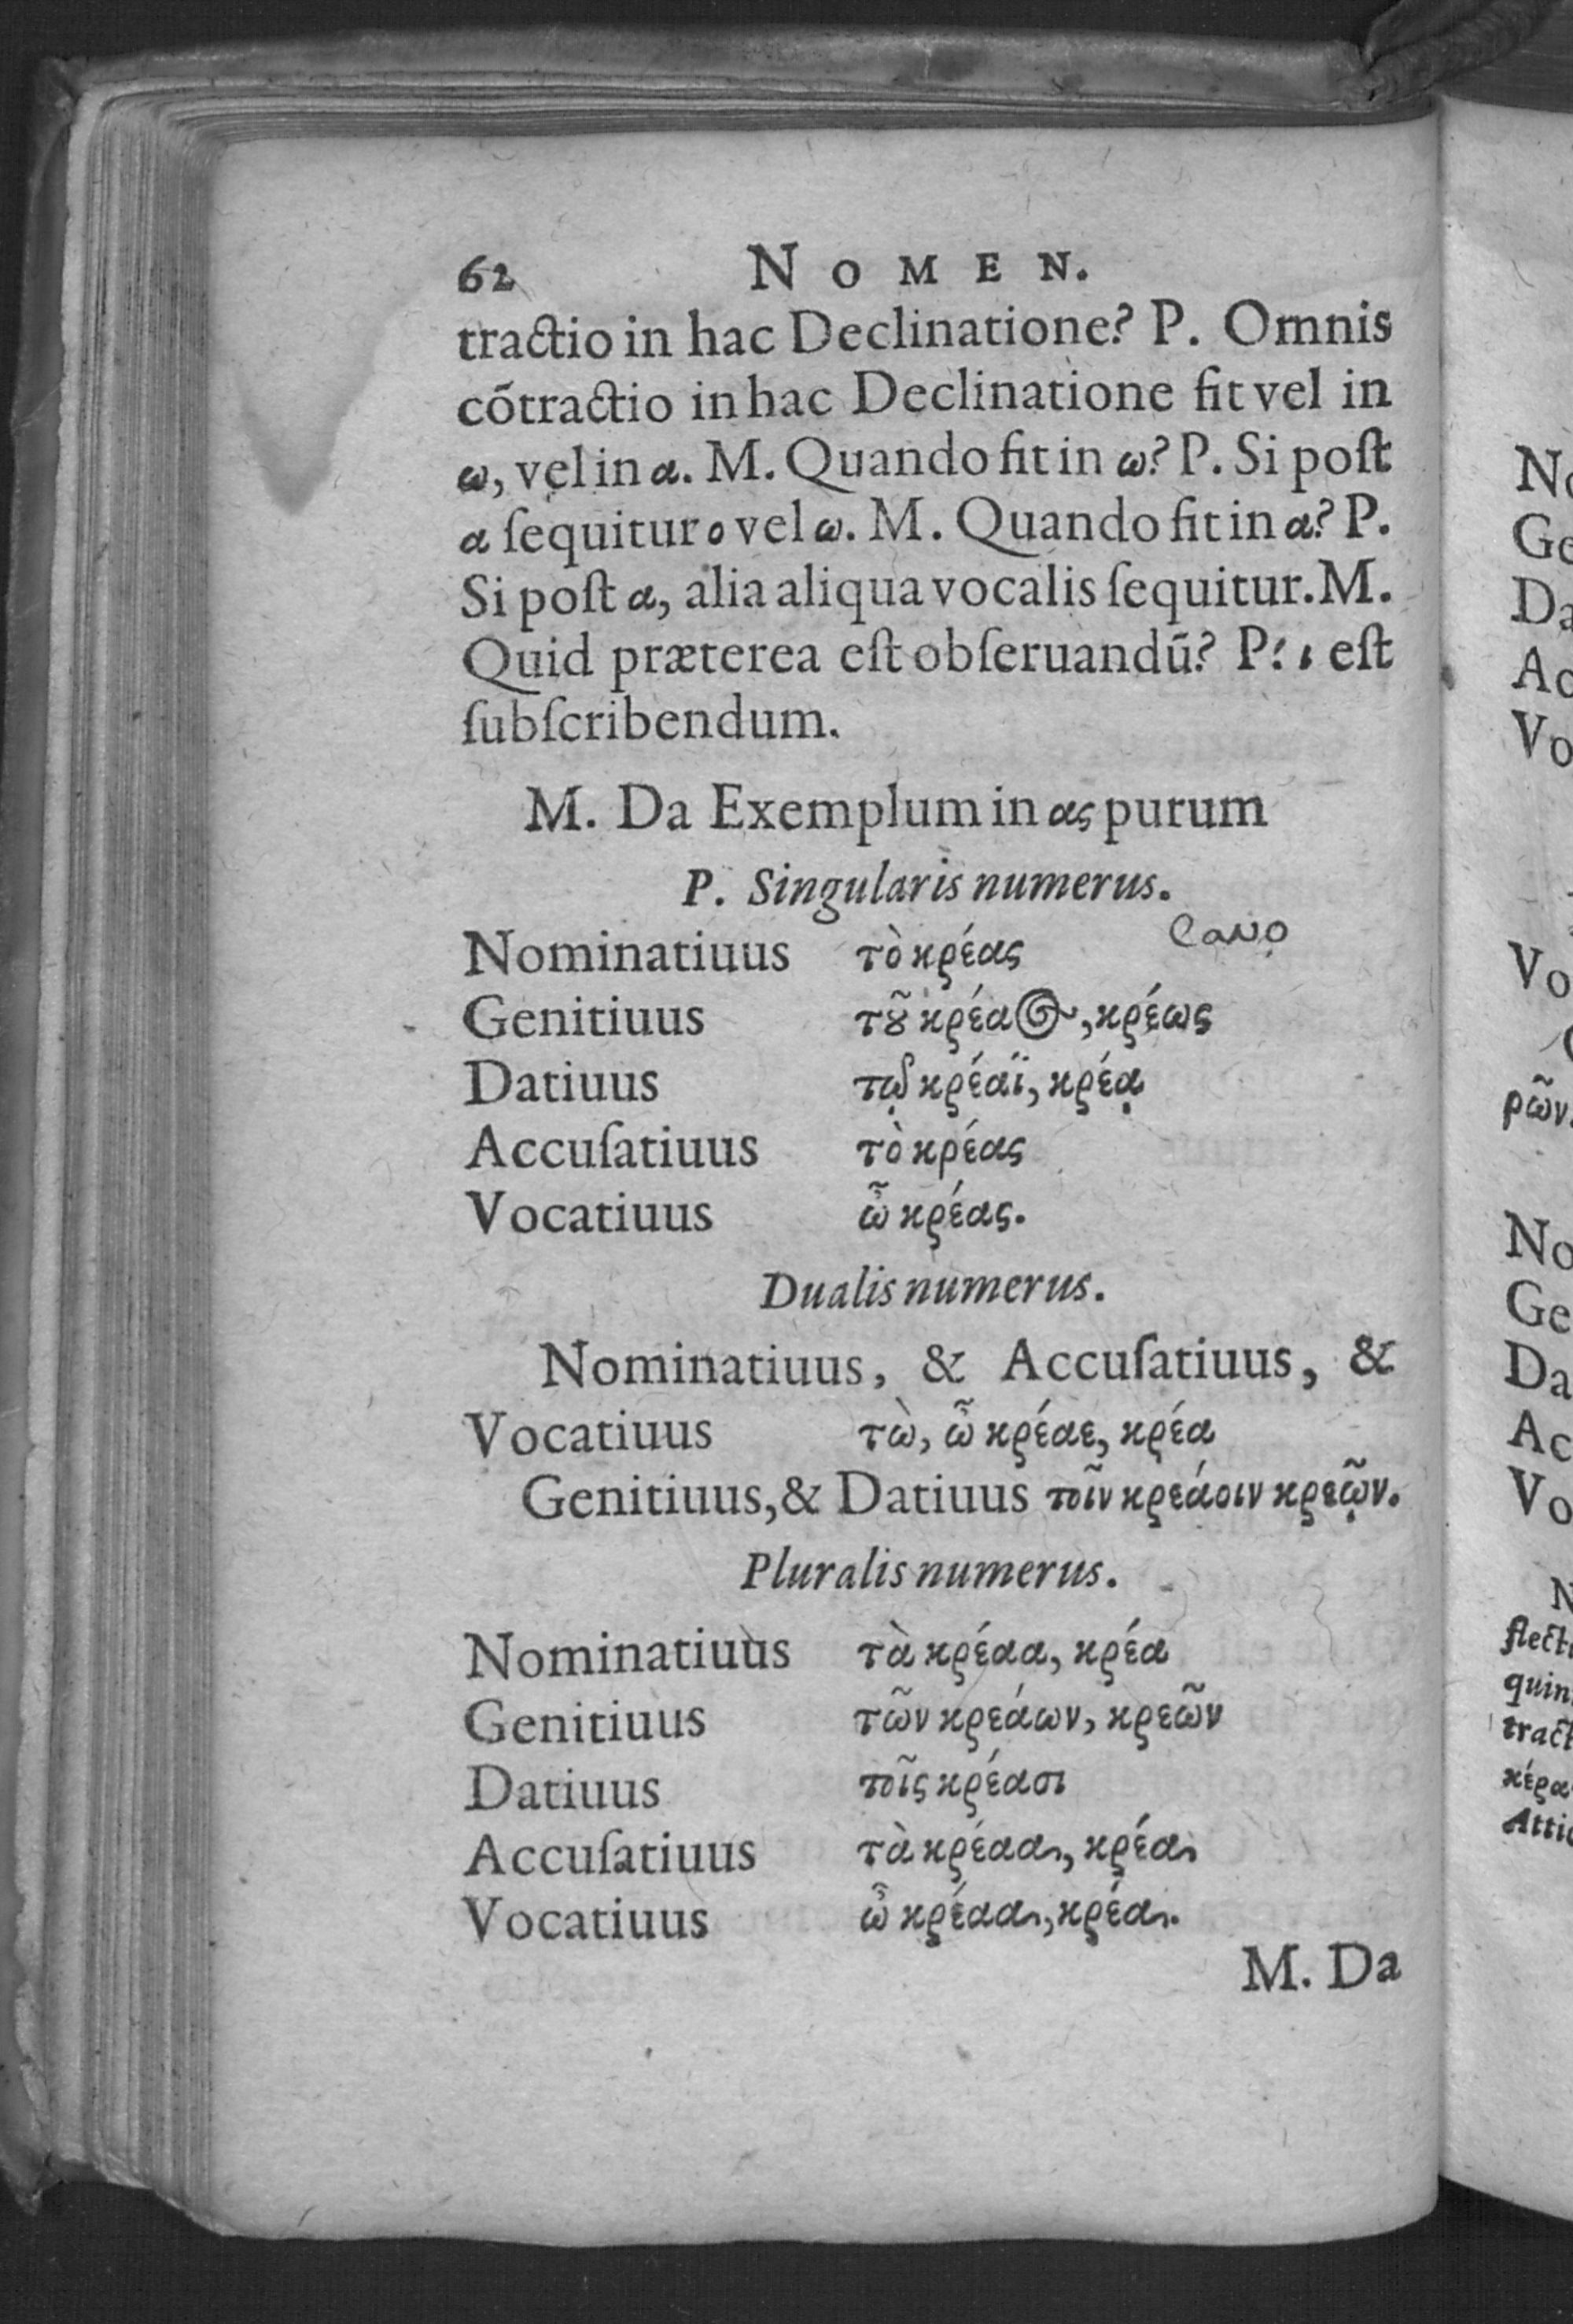 62 NOMEN.
tractio in hac Declinatione? P. Omnis
cōtractio in hac Declinatione fit vel in
ω, vel in α. M. Quando fit in ω? P. Si poſt
α ſequitur ο vel ω. M. Quando fit in α? P.
Si poſt α, alia aliqua vocalis ſequitur. M.
Quid præterea eſt obſeruandū? P: ι eſt
ſubſcribendum.
M. Da Exemplum in ας purum
P. Singularis numerus.
Nominatiuus τὸ κρέας
Genitiuus τȣ͂ κρέατος, κρέως
Datiuus τῷ κρέαϊ, κρέᾳ
Accuſatiuus τὸ κρέας
Vocatiuus ὦ κρέας.
Dualis numerus.
Nominatiuus, & Accuſatiuus, &
Vocatiuus τὼ, ὦ κρέαε, κρέα
Genitiuus, & Datiuus τοῖν κρεάοιν κρεῷν.
Pluralis numerus.
Nominatiuus τὰ κρέαα, κρέα
Genitiuus τῶν κρεάων, κρεῶν
Datiuus τοῖς κρέασι
Accuſatiuus τὰ κρέαα, κρέα
Vocatiuus ὦ κρέαα, κρέα.
M. Da